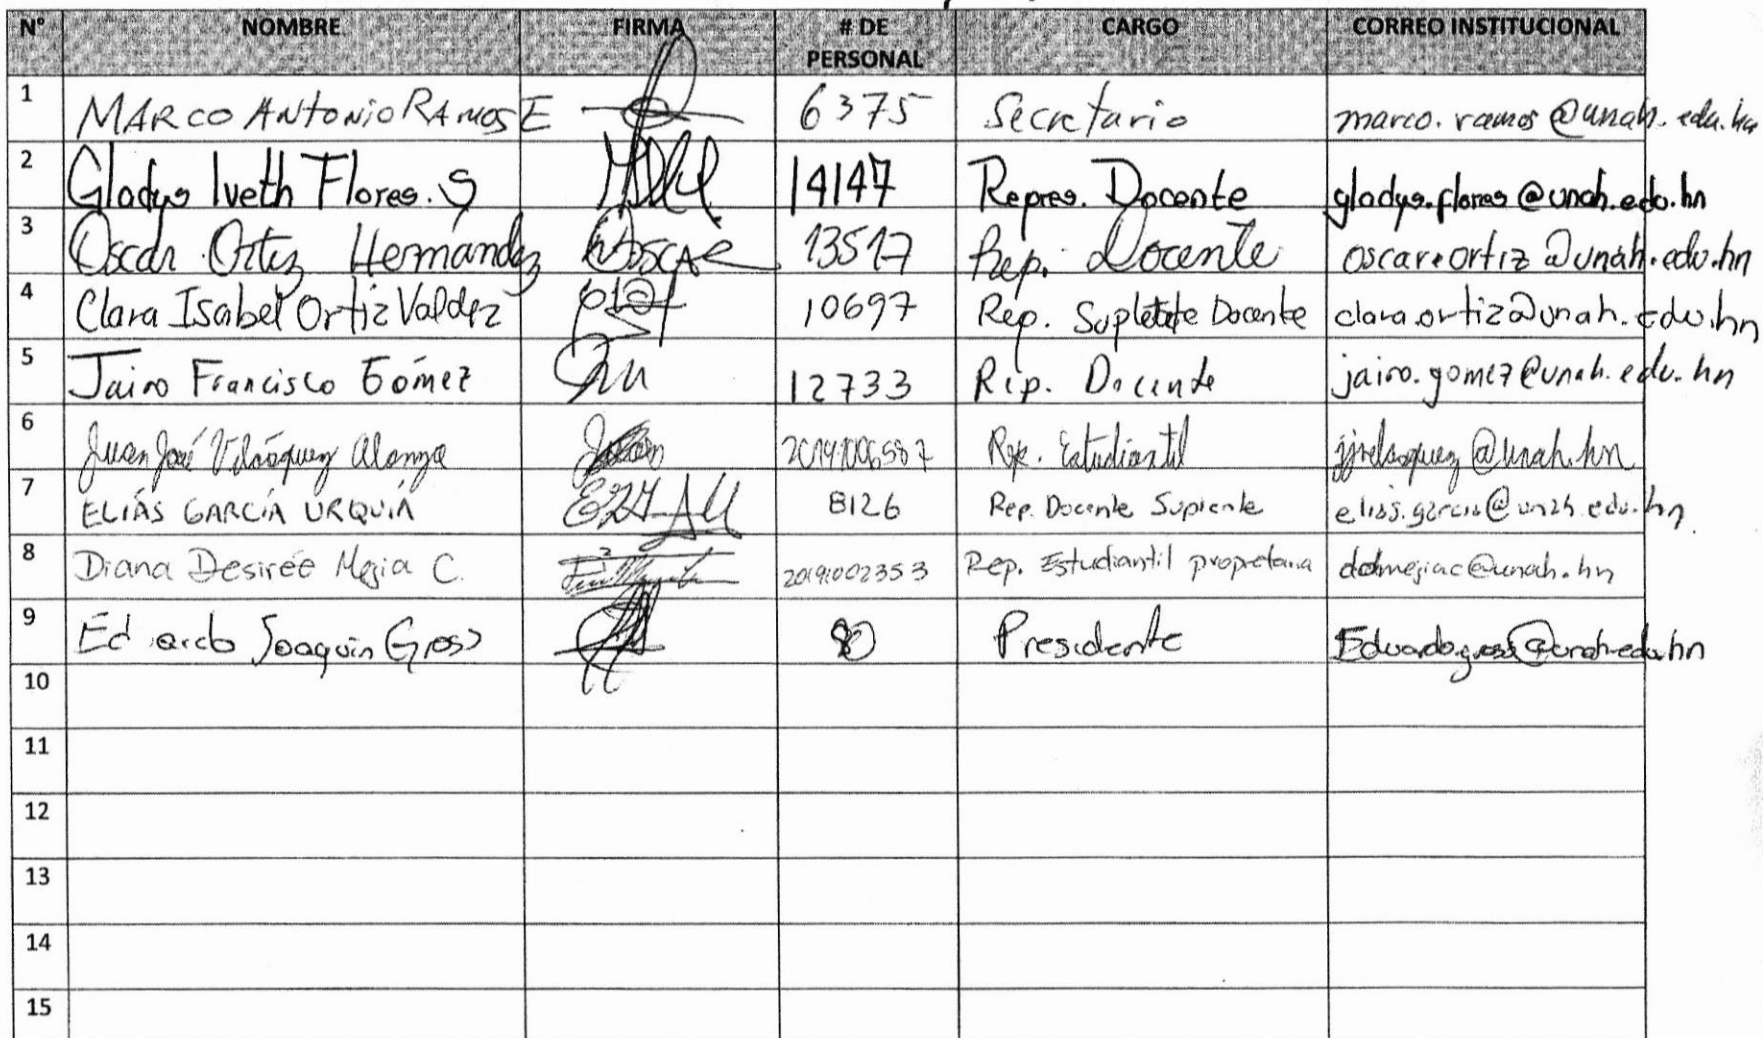 N° NOMBRE FIRMA # DE PERSONAL CARGO CORREO INSTITUCIONAL
1 MARCO ANTONIO RAMOS E 6375 Secretario marco.ramos@unah.edu.hn
2 Gladys Iveth Flores. S 14147 Repres. Docente gladys.flores@unah.edu.hn
3 Oscar Ortiz Hernández 13517 Rep. Docente oscar.ortiz@unah.edu.hn
4 Clara Isabel Ortiz Valdez 10697 Rep. Docente clara.ortiz@unah.edu.hn
5 Jairo Francisco Gómez 12733 Rep. Docente jairo.gomez@unah.edu.hn
6 Juan José Velásquez Rep. Estudiantil jjvelasquez@unah.hn
7 ELÍAS GARCÍA URQUÍA 8126 Rep. Docente Suplente elias.garcia@unah.edu.hn
8 Diana Desirée Mejia C. Rep. Estudiantil propretaria
9 Ed ardo Joaquin Gross Presidente Eduardo.gross@unah.edu.hn
10
11
12
13
14
15